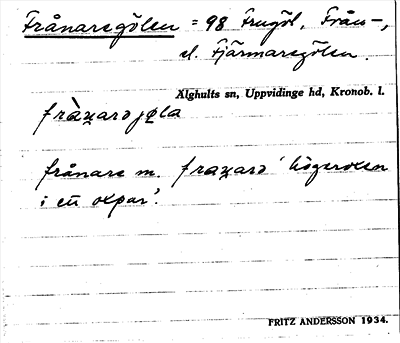 Frånaregölen = 98 Frugöl, Från-,
el. Fjärmaregölen.
Älghults sn, Uppvidinge hd, Kronob. l.
frànarəjøla
frånare m. franarə 'högeroxen
i ett oxpar'.
FRITZ ANDERSSON 1934.